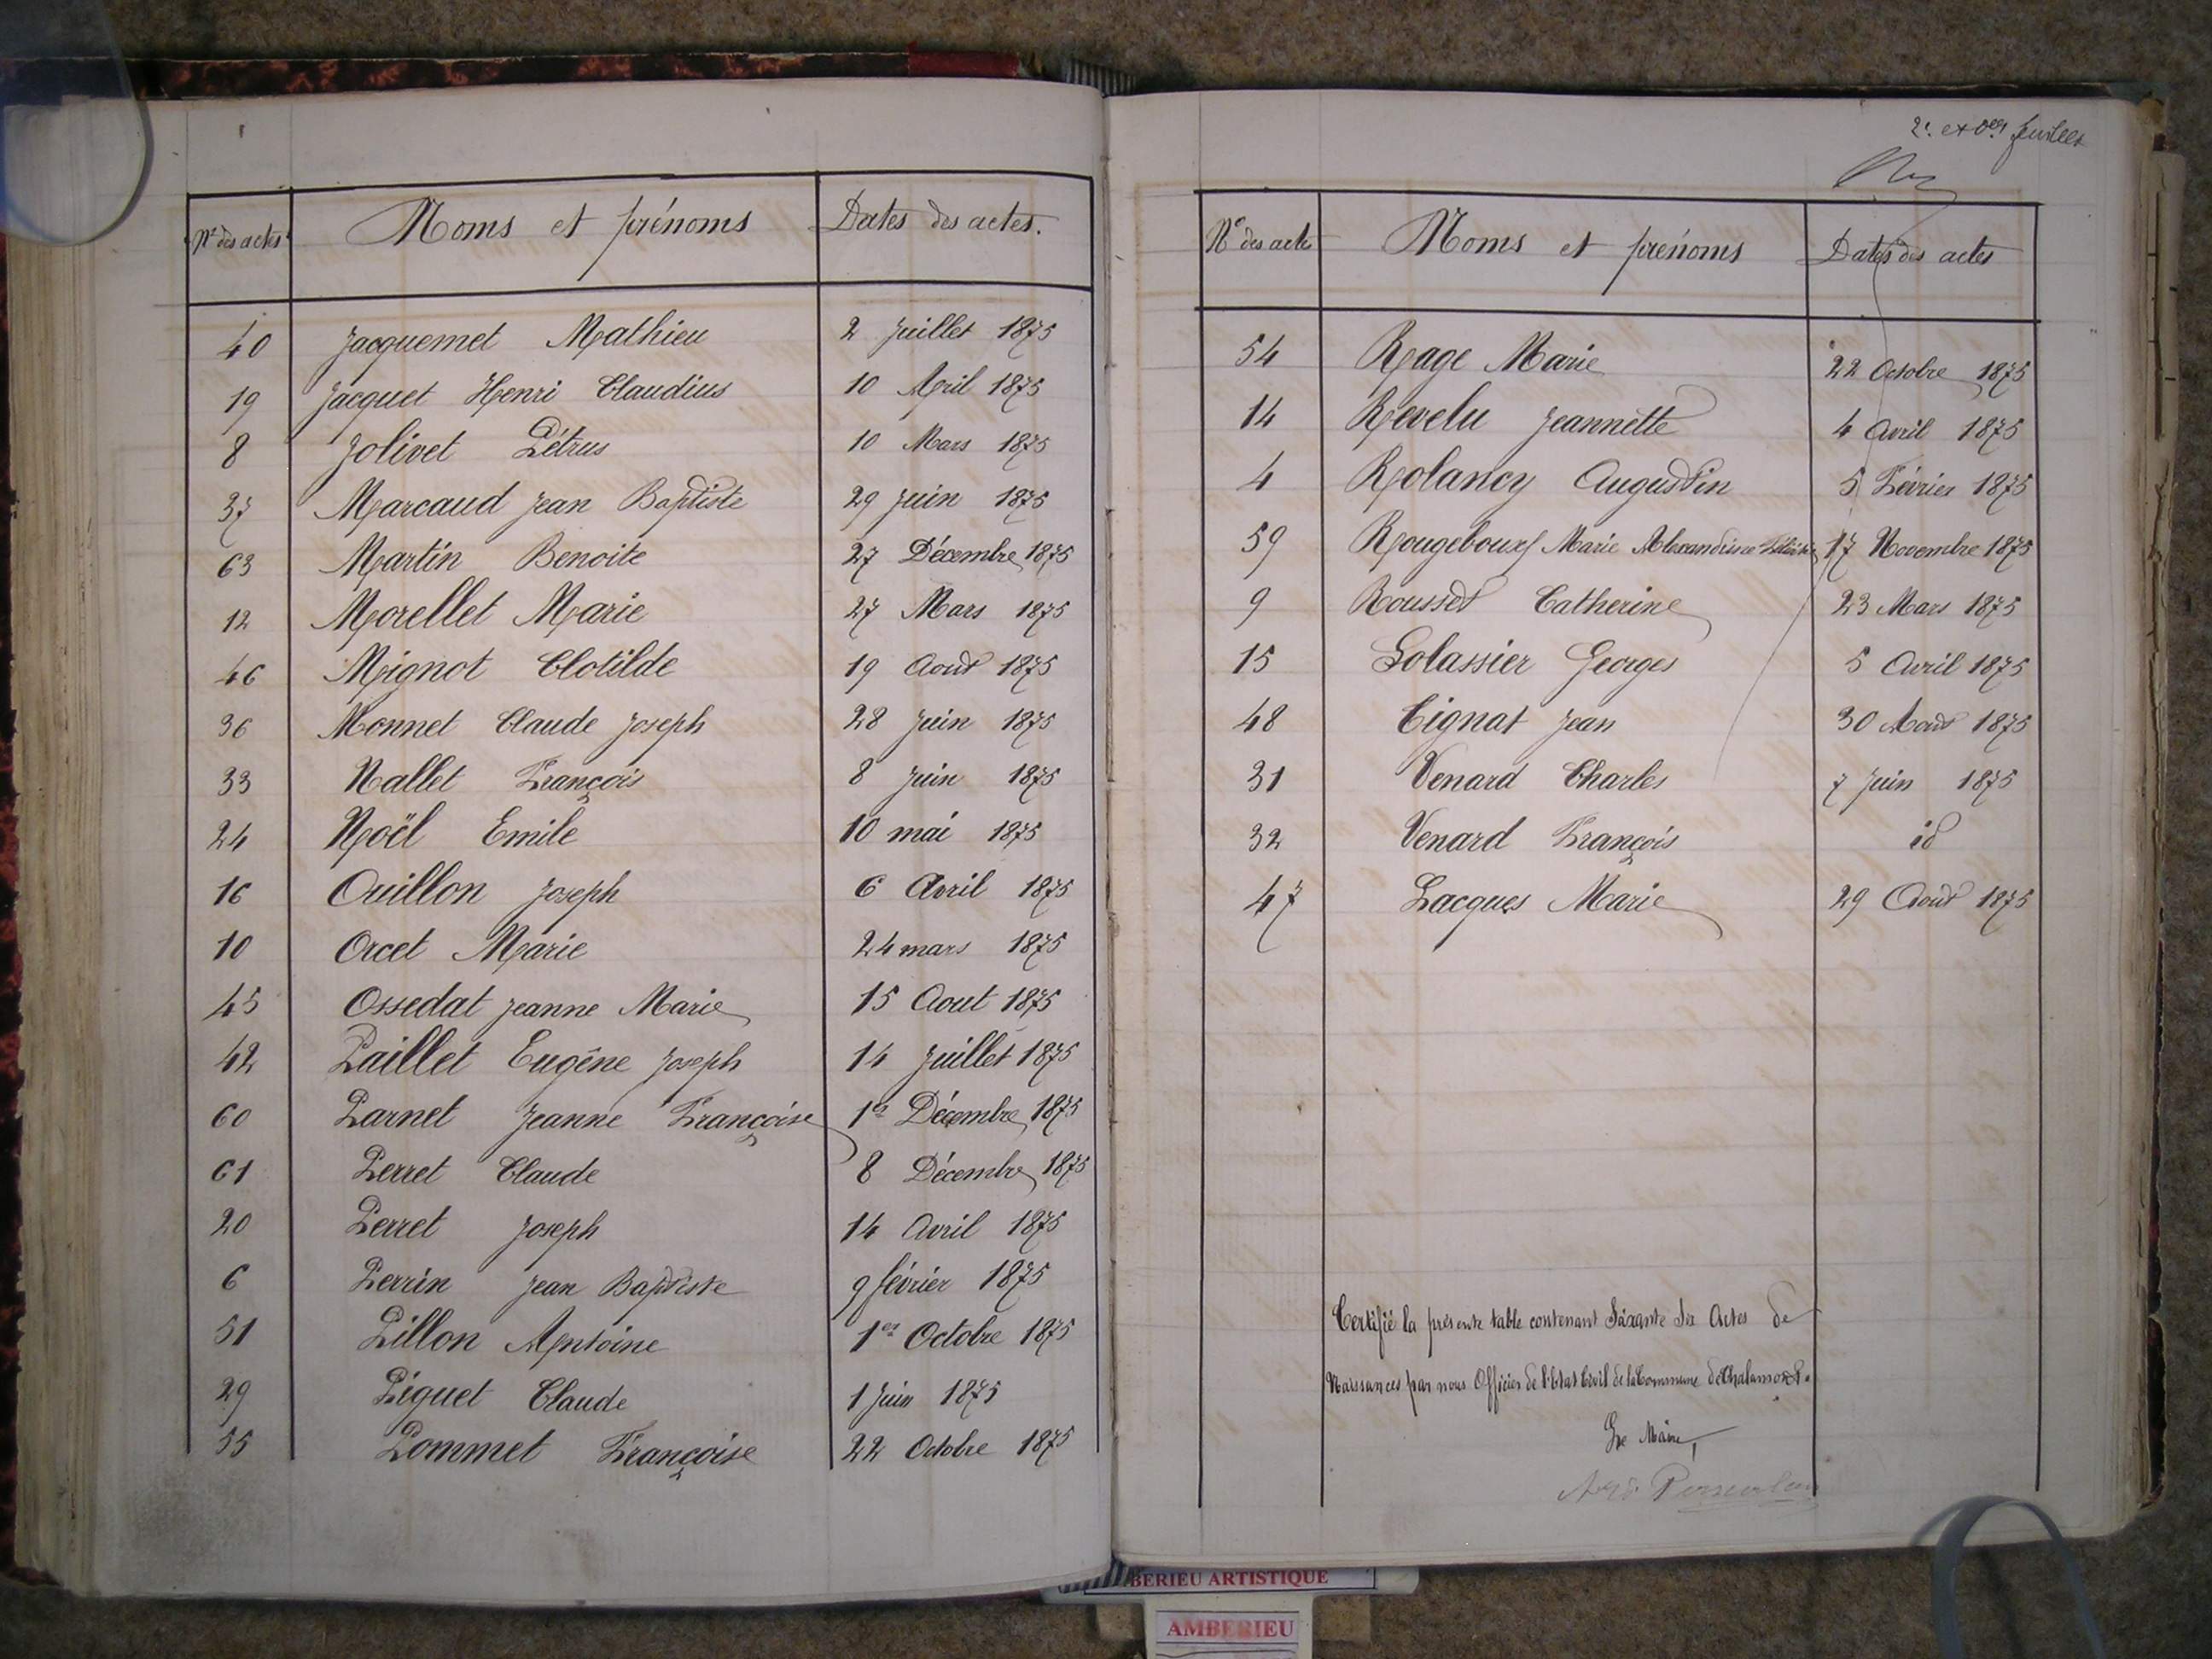 N° des actes Noms et prénoms Dates des actes.
40 Jacquemet Mathieu 2 Juillet 1875
19 Jacquet Henri Claudius 10 Avril 1875
8 Jolivet Pétrus 10 Mars 1875
37 Marcaud Jean Baptiste 29 Juin 1875
63 Martin Benoite 27 Décembre 1875
12 Morellet Marie 27 Mars 1875
46 Mignot Clotilde 19 Aout 1875
36 Monnet Claude Joseph 28 Juin 1875
33 Nallet François 8 Juin 1875
24 Noël Emile 10 mai 1875
16 Ouillon Joseph 6 Avril 1875
10 Orcet Marie 24 mars 1875
45 Ossedat Jeanne Marie 15 Aout 1875
42 Paillet Eugêne Joseph 14 Juillet 1875
60 Parnet Jeanne Françoise 1er Décembre 1875
61 Perret Claude 8 Décembre 1875
20 Perret Joseph 14 Avril 1875
6 Perrin Jean Baptiste 9 février 1875
51 Pillon Antoine 1er Octobre 1875
29 Piguet Claude 1 Juin 1875
55 Pommet Françoise 22 Octobre 1875
2e et feuillet
N° des acte Noms et prénoms Dates des actes
54 Rage Marie 22 Octobre 1875
14 Revelu Jeannette 4 Avril 1875
4 Rolancy Augustin 5 Février 1875
59 Marie Alexandrine 17 Novembre 1875
9 Rousset Catherine 23 Mars 1875
15 Solassier Georges 5 Avril 1875
48 Tignat Jean 30 Aout 1875
31 Venard Charles 7 Juin 1875
32 Venard François id
47 Lacques Marie 29 Aout 1875
Certifié la présente table contenant Soixante Six Actes de
Naissances par nous Officier de l'Etat Civil de la Commune de Chalamont.
Le Maire,
BERIEU ARTISTIQUE
AMBERIEU